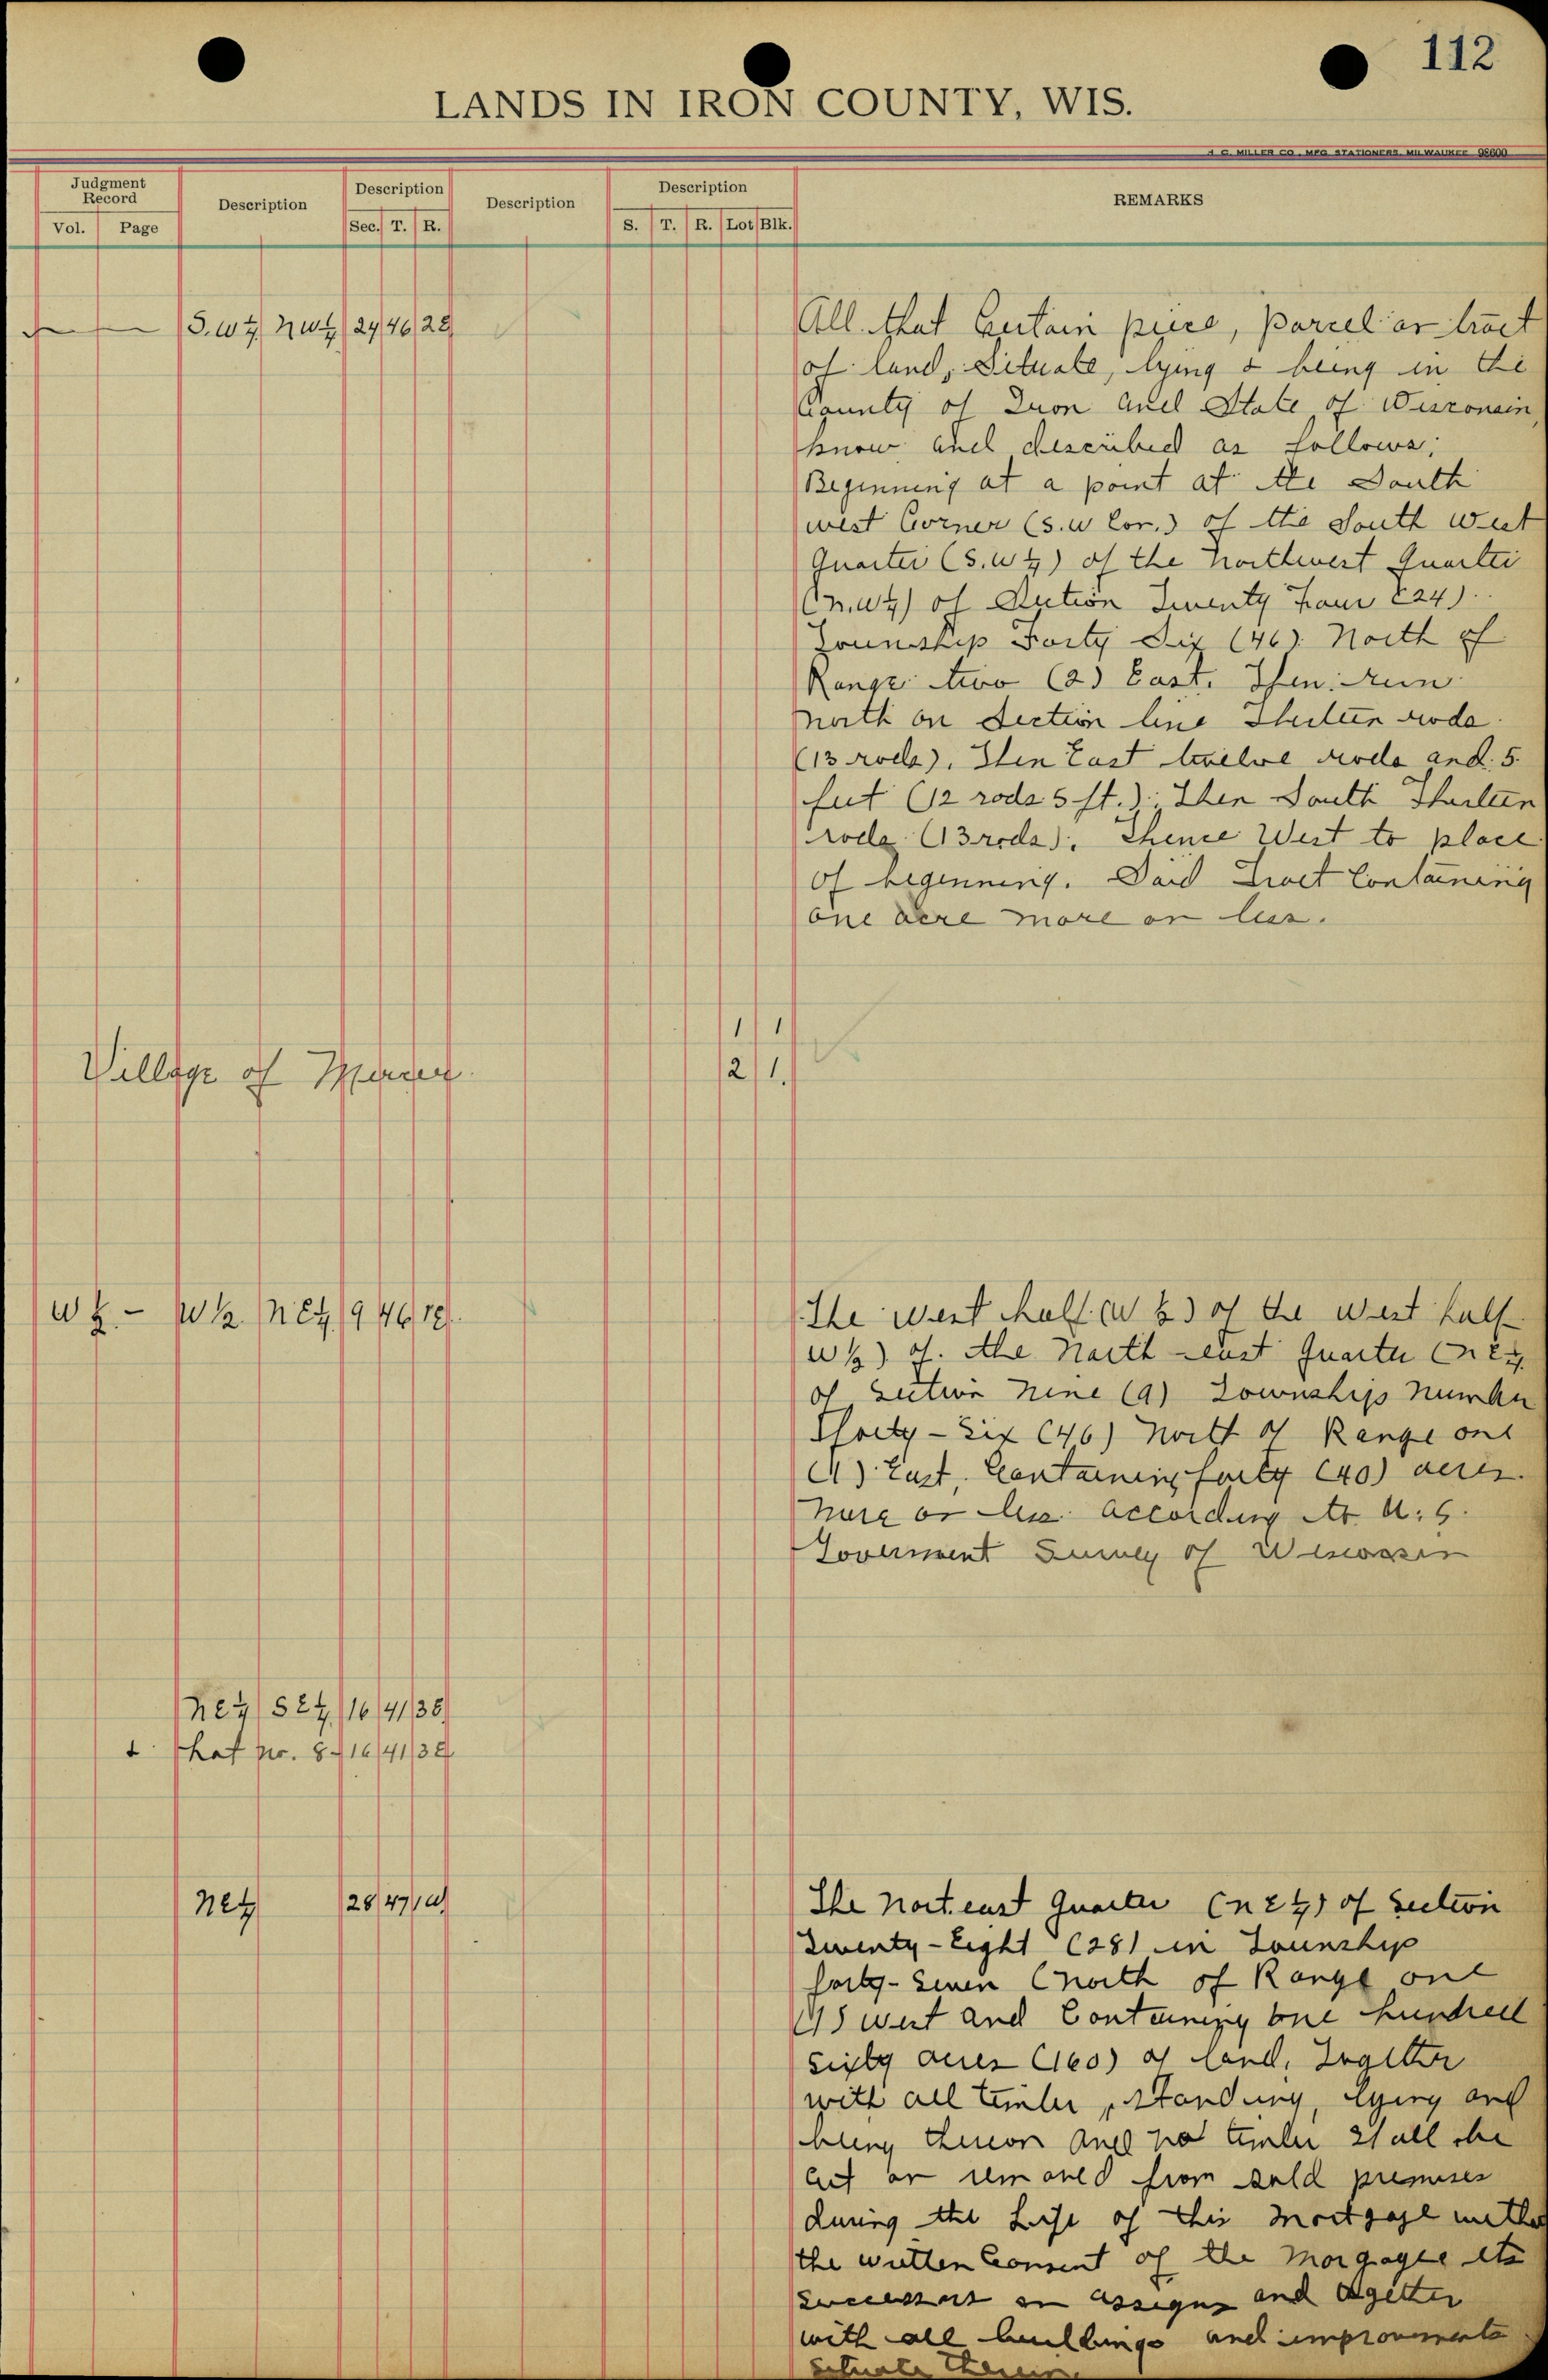 112
LANDS IN IRON COUNTY, WIS.
H. C. MILLER CO., MFG STATIONERS, MILWAUKEE 98600
Judgment Record
Vol. Page
Description
Description
Sec. T. R.
Description
Description
S. T. R. Lot Blk.
REMARKS
S.W¼ NW¼ 24 46 2E
All that Certain piece, parcel or tract
of land, Situate, lying & being in the
County of Iron and State of Wisconsin,
know and described as follows;
Beginning at a point at the South
west Corner (S.W Cor.) of the South West
Quarter (S.W¼) of the Northwest Quarter
(N.W¼) of Section Twenty Four (24)
Township Forty Six (46) North of
Range two (2) East. Then run
north on Section line Thirteen rods
(13 rods), Then East twelve rods and 5
feet (12 rods 5 ft.); Then South Thirteen
rods (13 rods); Thence West to place
of beginning. Said Tract Containing
one acre more or less.
Village of Mercer
1 1
2 1.
W½ - W½ NE¼ 9 46 1E
The West half (W½) of the West half
W½) of the North-east Quarter (NE¼
of Section Nine (9) Township Number
Forty-Six (46) North of Range one
(1) East, Containing forty (40) acres
more or less according to U.S.
Goverment Survey of Wisconsin
NE¼ SE¼ 16 41 3E
& Lot No. 8 - 16 41 3E
NE¼ 28 47 1W
The Nort east Quarter (NE¼) of Section
Twenty-Eight (28) in Township
forty-Seven (North of Range one
(1) West and Containing one hundred
Sixty acres (160) of land, Together
with all timber, standing, lying and
being thereon and no timber shall be
cut or removed from said premises
during the Life of this Mortgage
the written Consent of the Morgagee its
Successors or assigns and together
with all buildings and improvements
Situate therein.